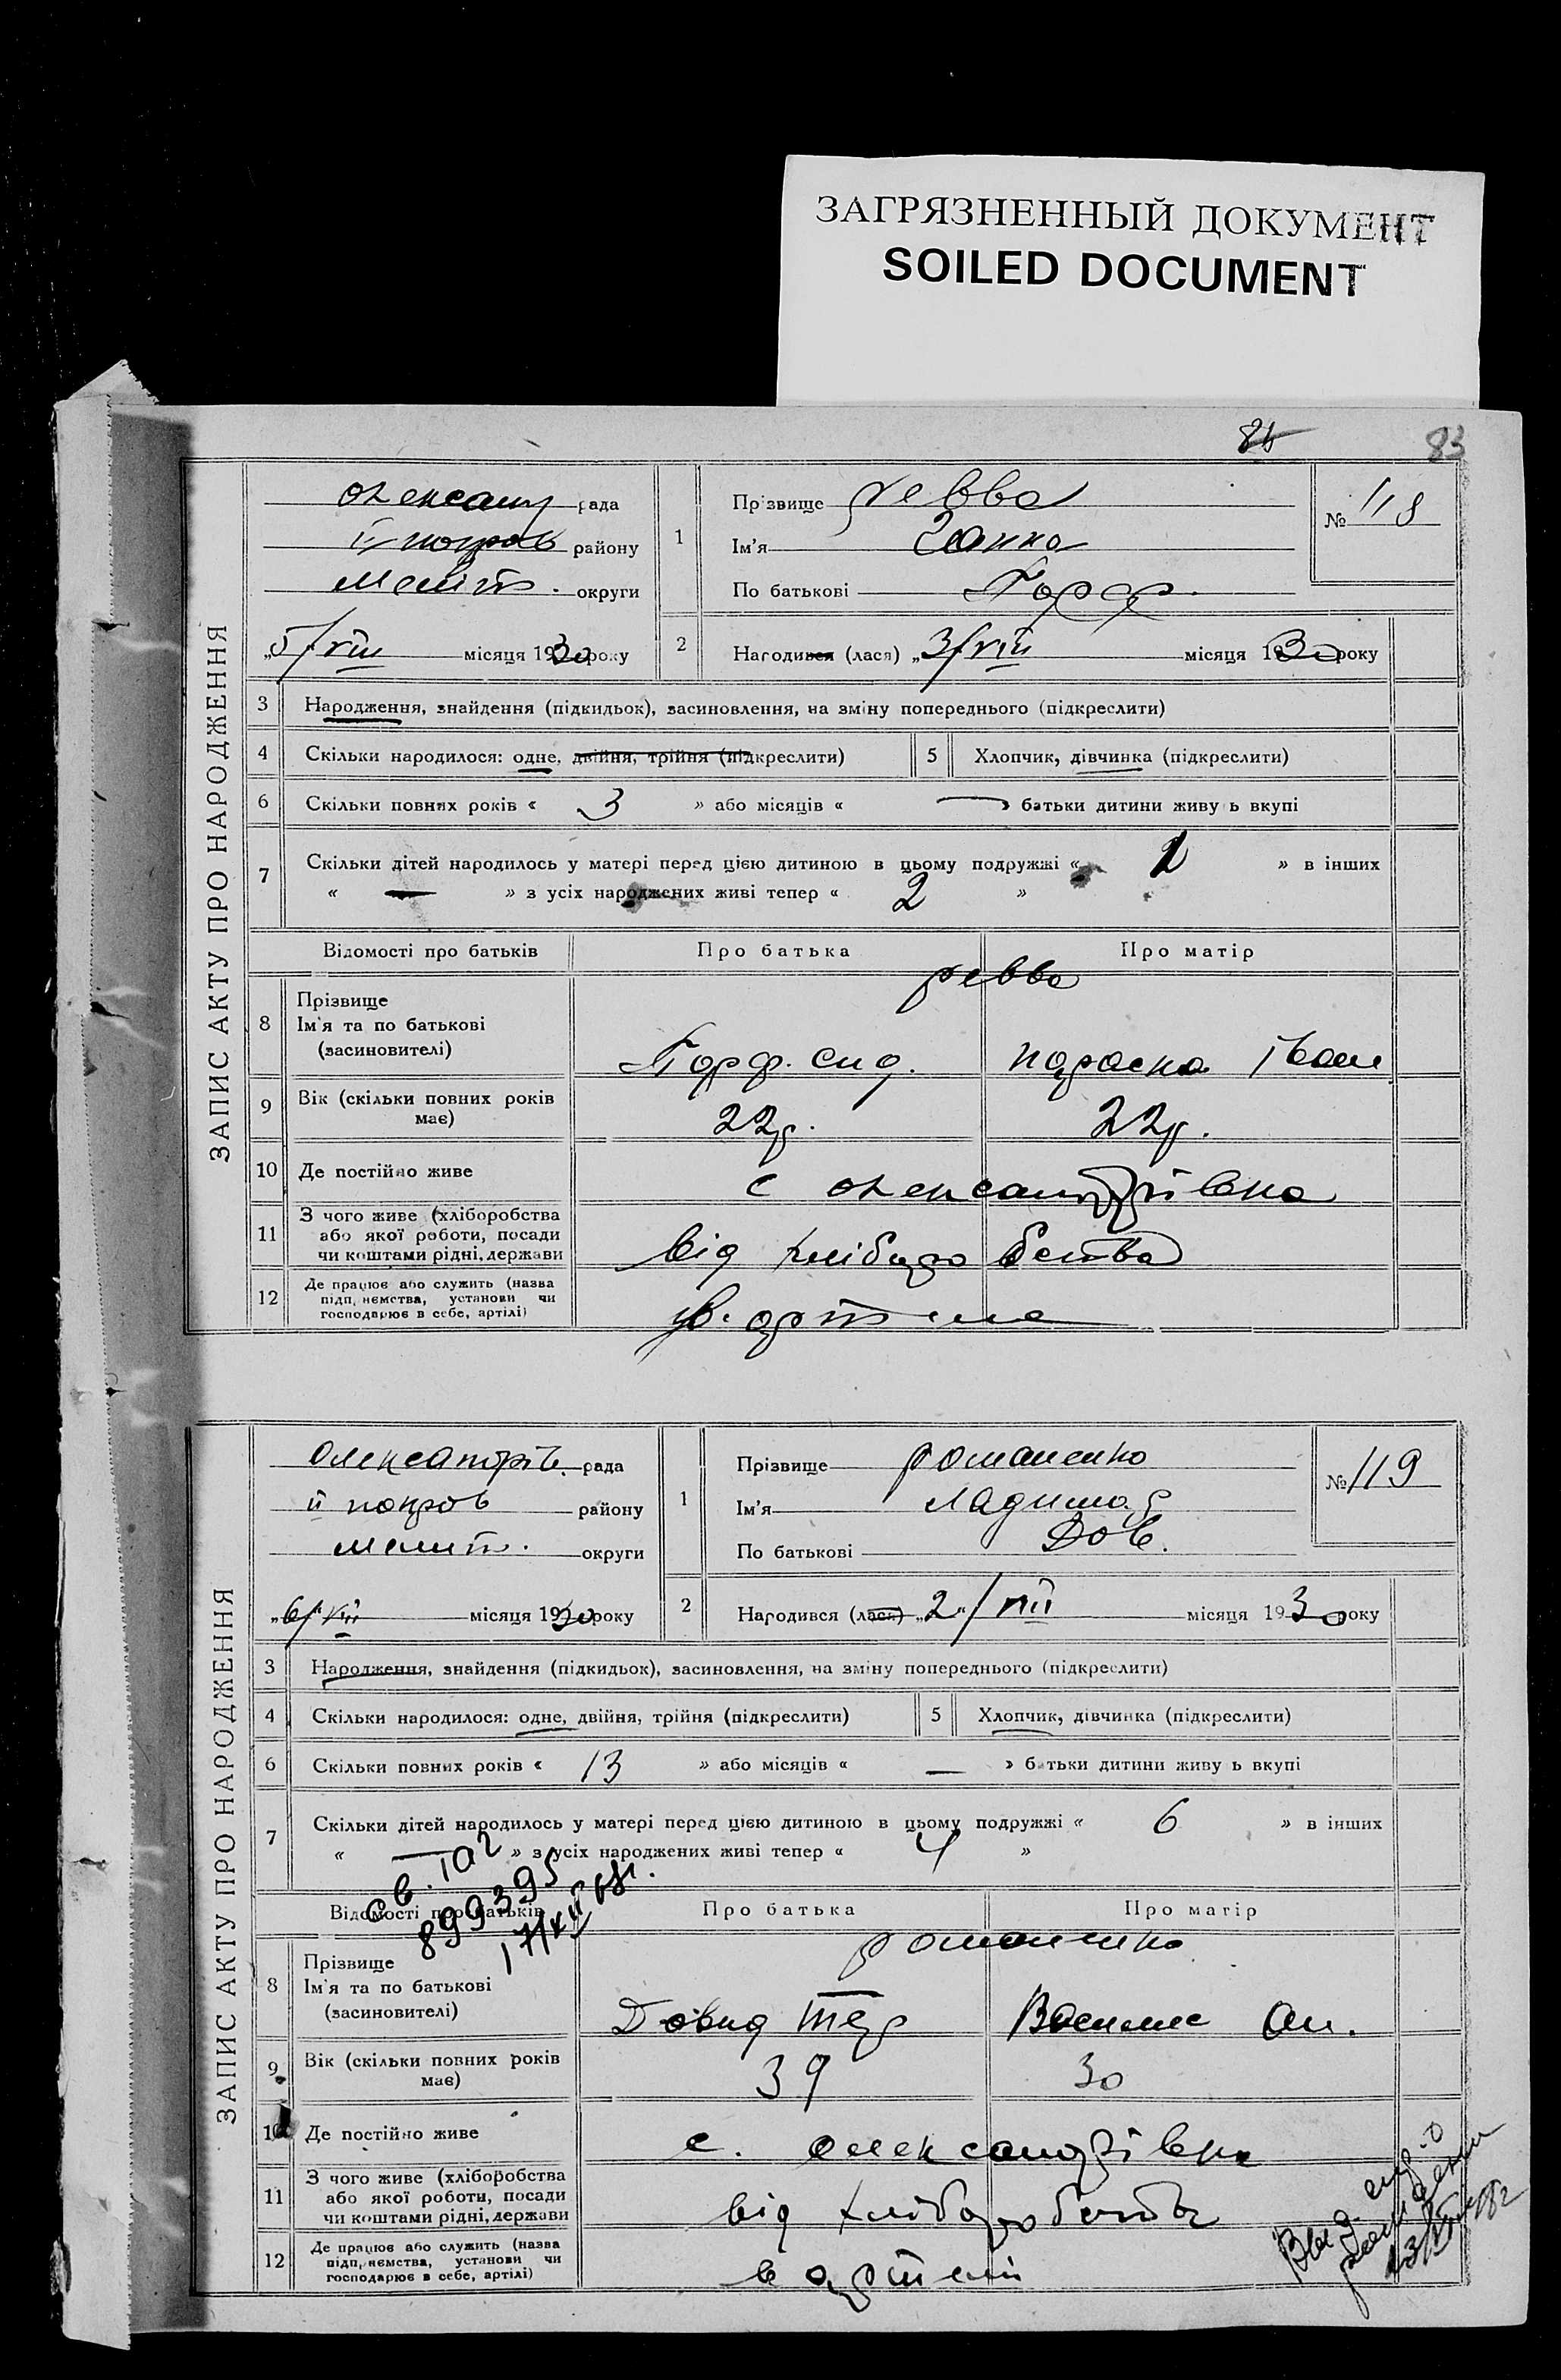 ЗАГРЯЗНЕННЫЙ ДОКУМЕНТ
SOILED DOCUMENT
83
ЗАПИС АКТУ ПРО НАРОДЖЕННЯ
Олександ рада
ІІ покров району
Меліт. округи
„5/VIII місяця 1930 року
1 Прізвище Ревва
Ім'я Ганна
По батькові Порф.
№ 118
2 Народився (лася) „3/VIII місяця 1930 року
3 Народження, знайдення (підкидьок), засиновлення, на зміну попереднього (підкреслити)
4 Скільки народилося: одне, двійня, трійня (підкреслити)
5 Хлопчик, дівчинка (підкреслити)
6 Скільки повних років « 3 » або місяців « — » батьки дитини живуть вкупі
7 Скільки дітей народилось у матері перед цією дитиною в цьому подружжі « » в інших
« — » з усіх народжених живі тепер « 2 »
Відомості про батьків Про батька Про матір
Ревва
8 Прізвище
Ім'я та по батькові
(засиновителі)
Порф. Сид. Параска Іван
9 Вік (скільки повних років
має)
22 р. 22 р.
10 Де постійно живе с Олександрівка
11 З чого живе (хліборобства
або якої роботи, посади
чи коштами рідні, держави
від хліборобства
12 Де працює або служить (назва
підприємства, установи чи
господарює в себе, артілі)
ЗАПИС АКТУ ПРО НАРОДЖЕННЯ
Олександрів. рада
ІІ покров району
Мелит. округи
„6/VIII місяця 1930 року
1 Прізвище Романенко
Ім'я Ладимар
По батькові Дов.
№ 119
2 Народився (лася) „2"/VIII місяця 1930 року
3 Народження, знайдення (підкидьок), засиновлення, на зміну попереднього (підкреслити)
4 Скільки народилося: одне, двійня, трійня (підкреслити)
5 Хлопчик, дівчинка (підкреслити)
6 Скільки повних років « 13 » або місяців « — » батьки дитини живуть вкупі
7 Скільки дітей народилось у матері перед цією дитиною в цьому подружжі « 6 » в інших
« — » з усіх народжених живі тепер « 4 »
899395
Відомості про батьків Про батька Про матір
Романенко
8 Прізвище
Ім'я та по батькові
(засиновителі)
Довид Василис
9 Вік (скільки повних років
має)
39 30
10 Де постійно живе с. Олександрівка
11 З чого живе (хліборобства
або якої роботи, посади
чи коштами рідні, держави
від хліборобства
12 Де працює або служить (назва
підприємства, установи чи
господарює в себе, артілі)
в артелі